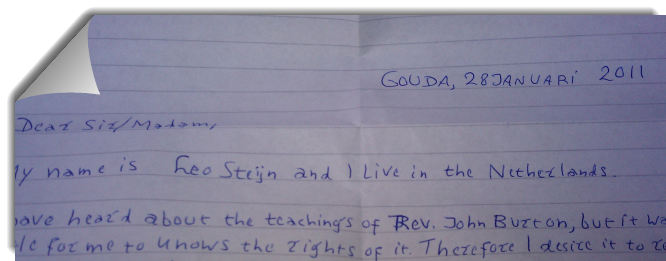 GOUDA, 28 JANUARI 2011
Dear Sir/Madam,
My name is Leo Steijn and I Live in the Netherlands.
have heard about the teachings of Rev. John Burton, but it wa
le for me to knows the rights of it. Therefore I desire it to re